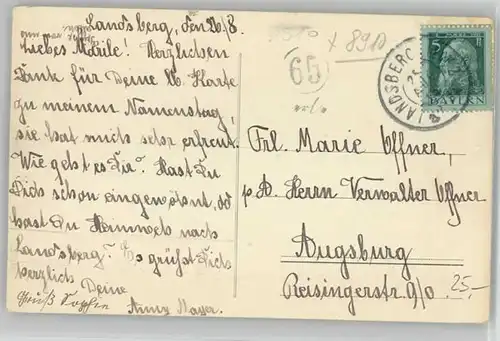 Landsberg, den 26/8.
Liebes Maile! Herzlichen
Dank für Deine lb. Karte
zu meinem Namenstag,
sie hat mich sehr erfreut.
Wie geht es Dir? Hast Du
Dich schon eingewöhnt, od
hast Du Heimweh nach
Landsberg? Es grüßt Dich
herzlich Deine
Anny Mayer.
Gruß Sophie
x 8910
65
LANDSBERG
5
BAYERN
Frl. Marie Offner,
p. Ad. Herrn Verwalter Offner
Augsburg
Reisingerstr. 9/0
25,-